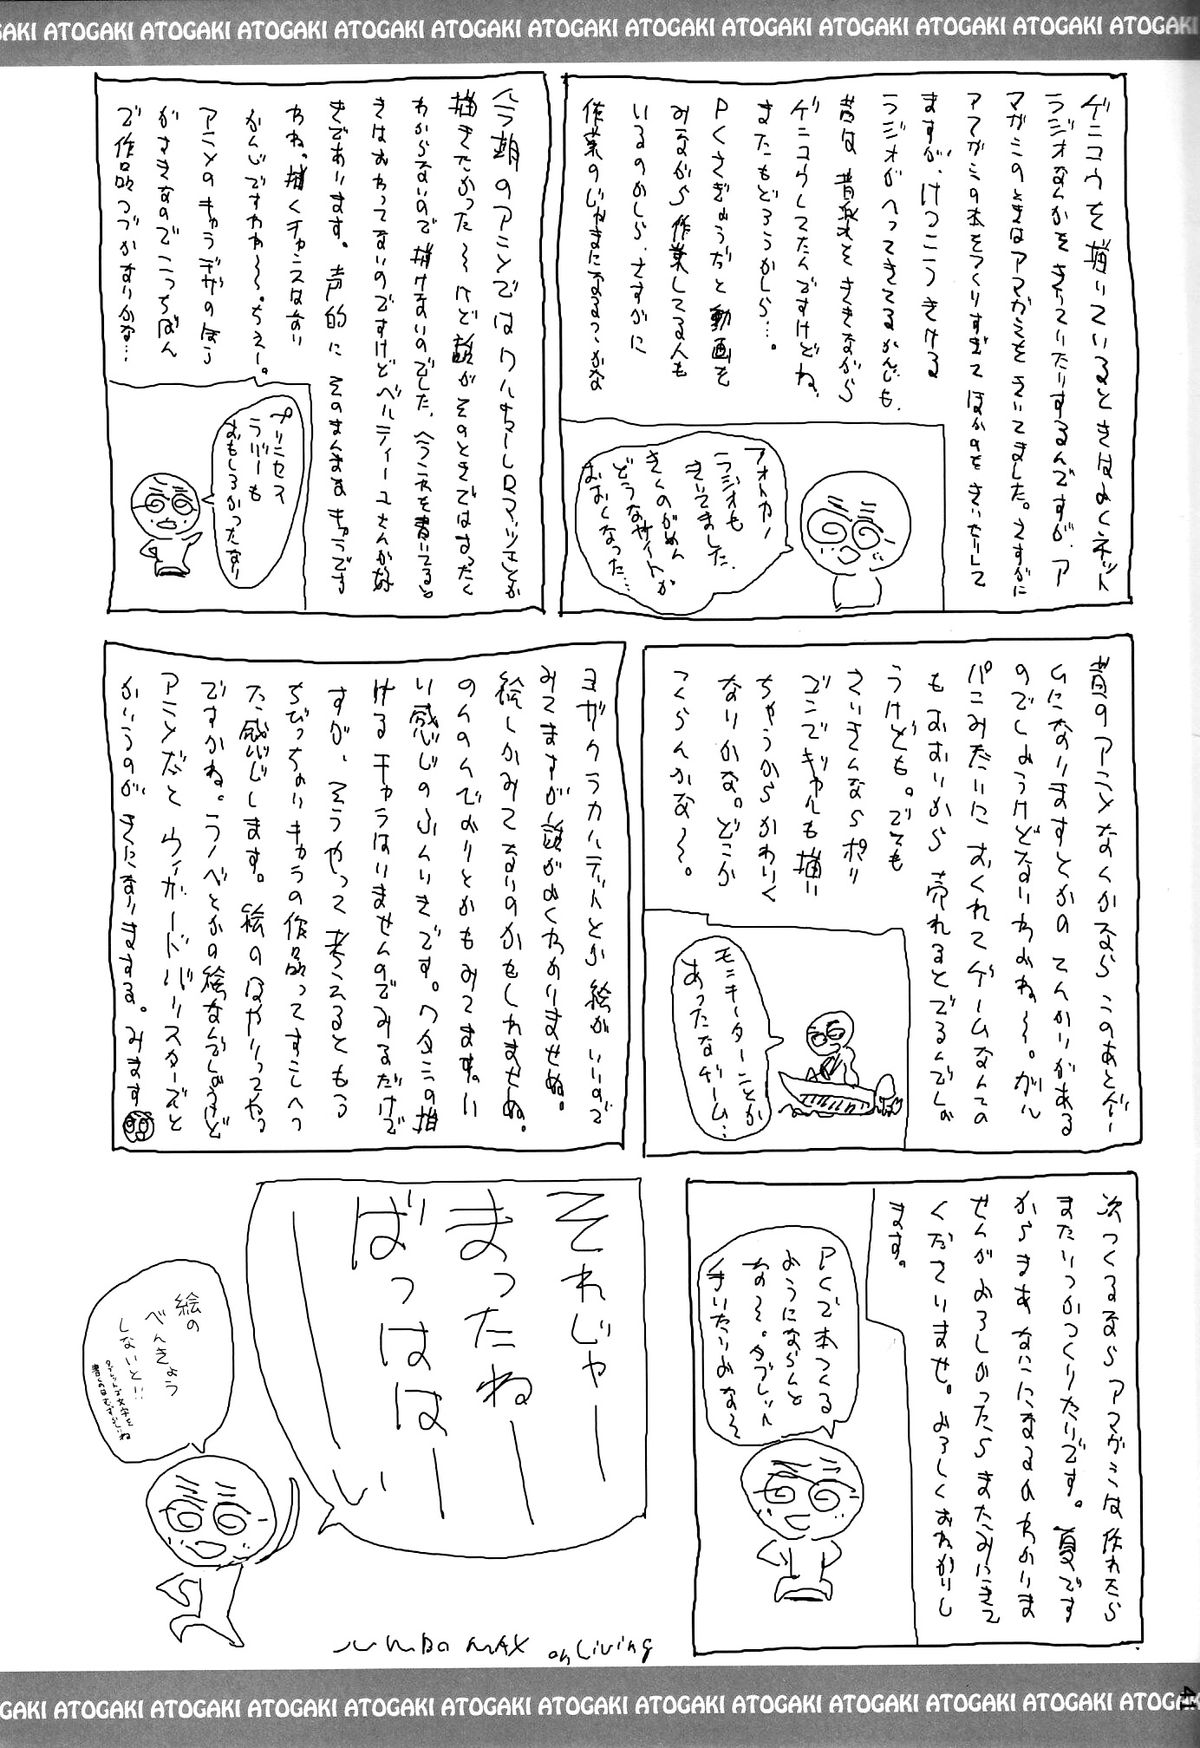 ATOGAKI ATOGAKI ATOGAKI ATOGAKI ATOGAKI ATOGAKI ATOGAKI ATOGAKI
ゲンコウを描いているときはよくネット
ラジオなんかをきいていたりするんですが、ア
マガミのときはアマガミをきいてました。さすがに
アマガミの本をつくりすぎてほかのをきいたりして
ますが、けっこうきける
ラジオがへってきてるかんじも、
昔は音楽をききながら
ゲンコウしてたんですけどね、
またもどろうかしら…。
PCさぎょうだと動画を
みながら作業してる人も
いるのかしら、さすがに
作業のじゃまになるっかな
アオトカノ
ラジオも
きいてました、
きくのがめん
どうなサイトが
おおくなった…
今期のアニメではワルキューレロマンツェとか
描きたかった〜けど話がそのときではまったく
わからないので描けないのでした、ベランスを書いてる
きはおわってないのですけどベルティーユさんが好
きであります。声的にそのまんまなキャラです
わね。描くチャンスはない
かんじですわね〜。ちぇー。
アニメのキャラデザのほう
がすきなのでこっちばん
で作品つづかないかな…
プリンセス
ラバーも
おもしろかったなり
昔のアニメなんかなら このあとゲー
ムになりますとかの てんかいがある
のでしょうけどないわよね〜。ガル
パンみたいにおくれてゲームなんての
もおおいから 売れるとでるんでしょ
うけども。でも
さいきんならポリ
ゴンでギャルも描い
ちゃうからかわいく
ないかな。どこか
つくらんかな〜。
モンキーターンとか
あったなゲーム…
ヨザクラカルテットとか 絵がいいので
みてますが話がよくわかりませぬ。
絵しかみてないのかもしれませぬ。
のんのんびよりとかもみてます。い
い感じのふんいきです。ワタシの描
けるキャラはいませんのでみるだけで
すが、そうやって考えるともえ
ちびっちゃいキャラの作品ってすこしへっ
た感じします。絵のはやりってやつ
ですかね。ラノベとかの絵なんでしょうけど
アニメだと ウィザードバリスターズと
かいうのが きになりまする。みます
次つくるなら アマガミは 作れたら
またいつかつくりたいです。夏です
からまあなにになるかわかりま
せんがよろしかったらまたみにきて
くださいませ。よろしくおねがいし
ます。
PCで本つくる
ようにならんと
な〜。タブレット
きいたいよな〜
それじゃー
まったねー
ばっはは
はーーい
絵の
べんきょう
しないと!!
タブレットで文字を
書くのはむずかしいね
JUMBO MAX on Living
ATOGAKI ATOGAKI ATOGAKI ATOGAKI ATOGAKI ATOGAKI ATOGAKI ATOGAKI